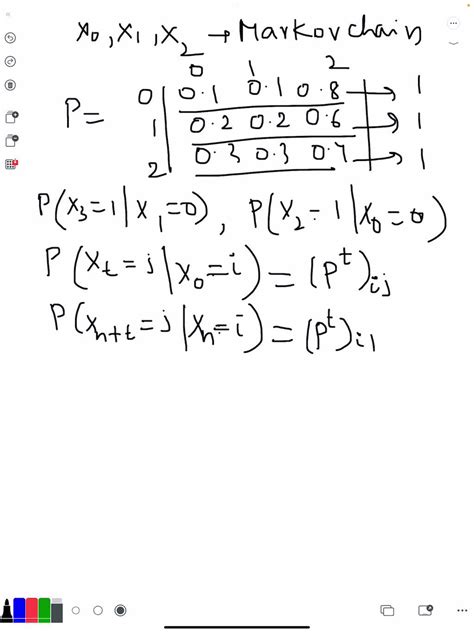 x₀, x₁, x₂ → Markov chain
0 1 2
P= 0 0.1 0.1 0.8 → 1
1 0.2 0.2 0.6 → 1
2 0.3 0.3 0.4 → 1
P(x₃=1|x₁=0), P(x₂=1|x₀=0)
P(xₜ=j|x₀=i)=(Pᵗ)ᵢⱼ
P(xₙ₊ₜ=j|xₙ=i)=(Pᵗ)ᵢⱼ